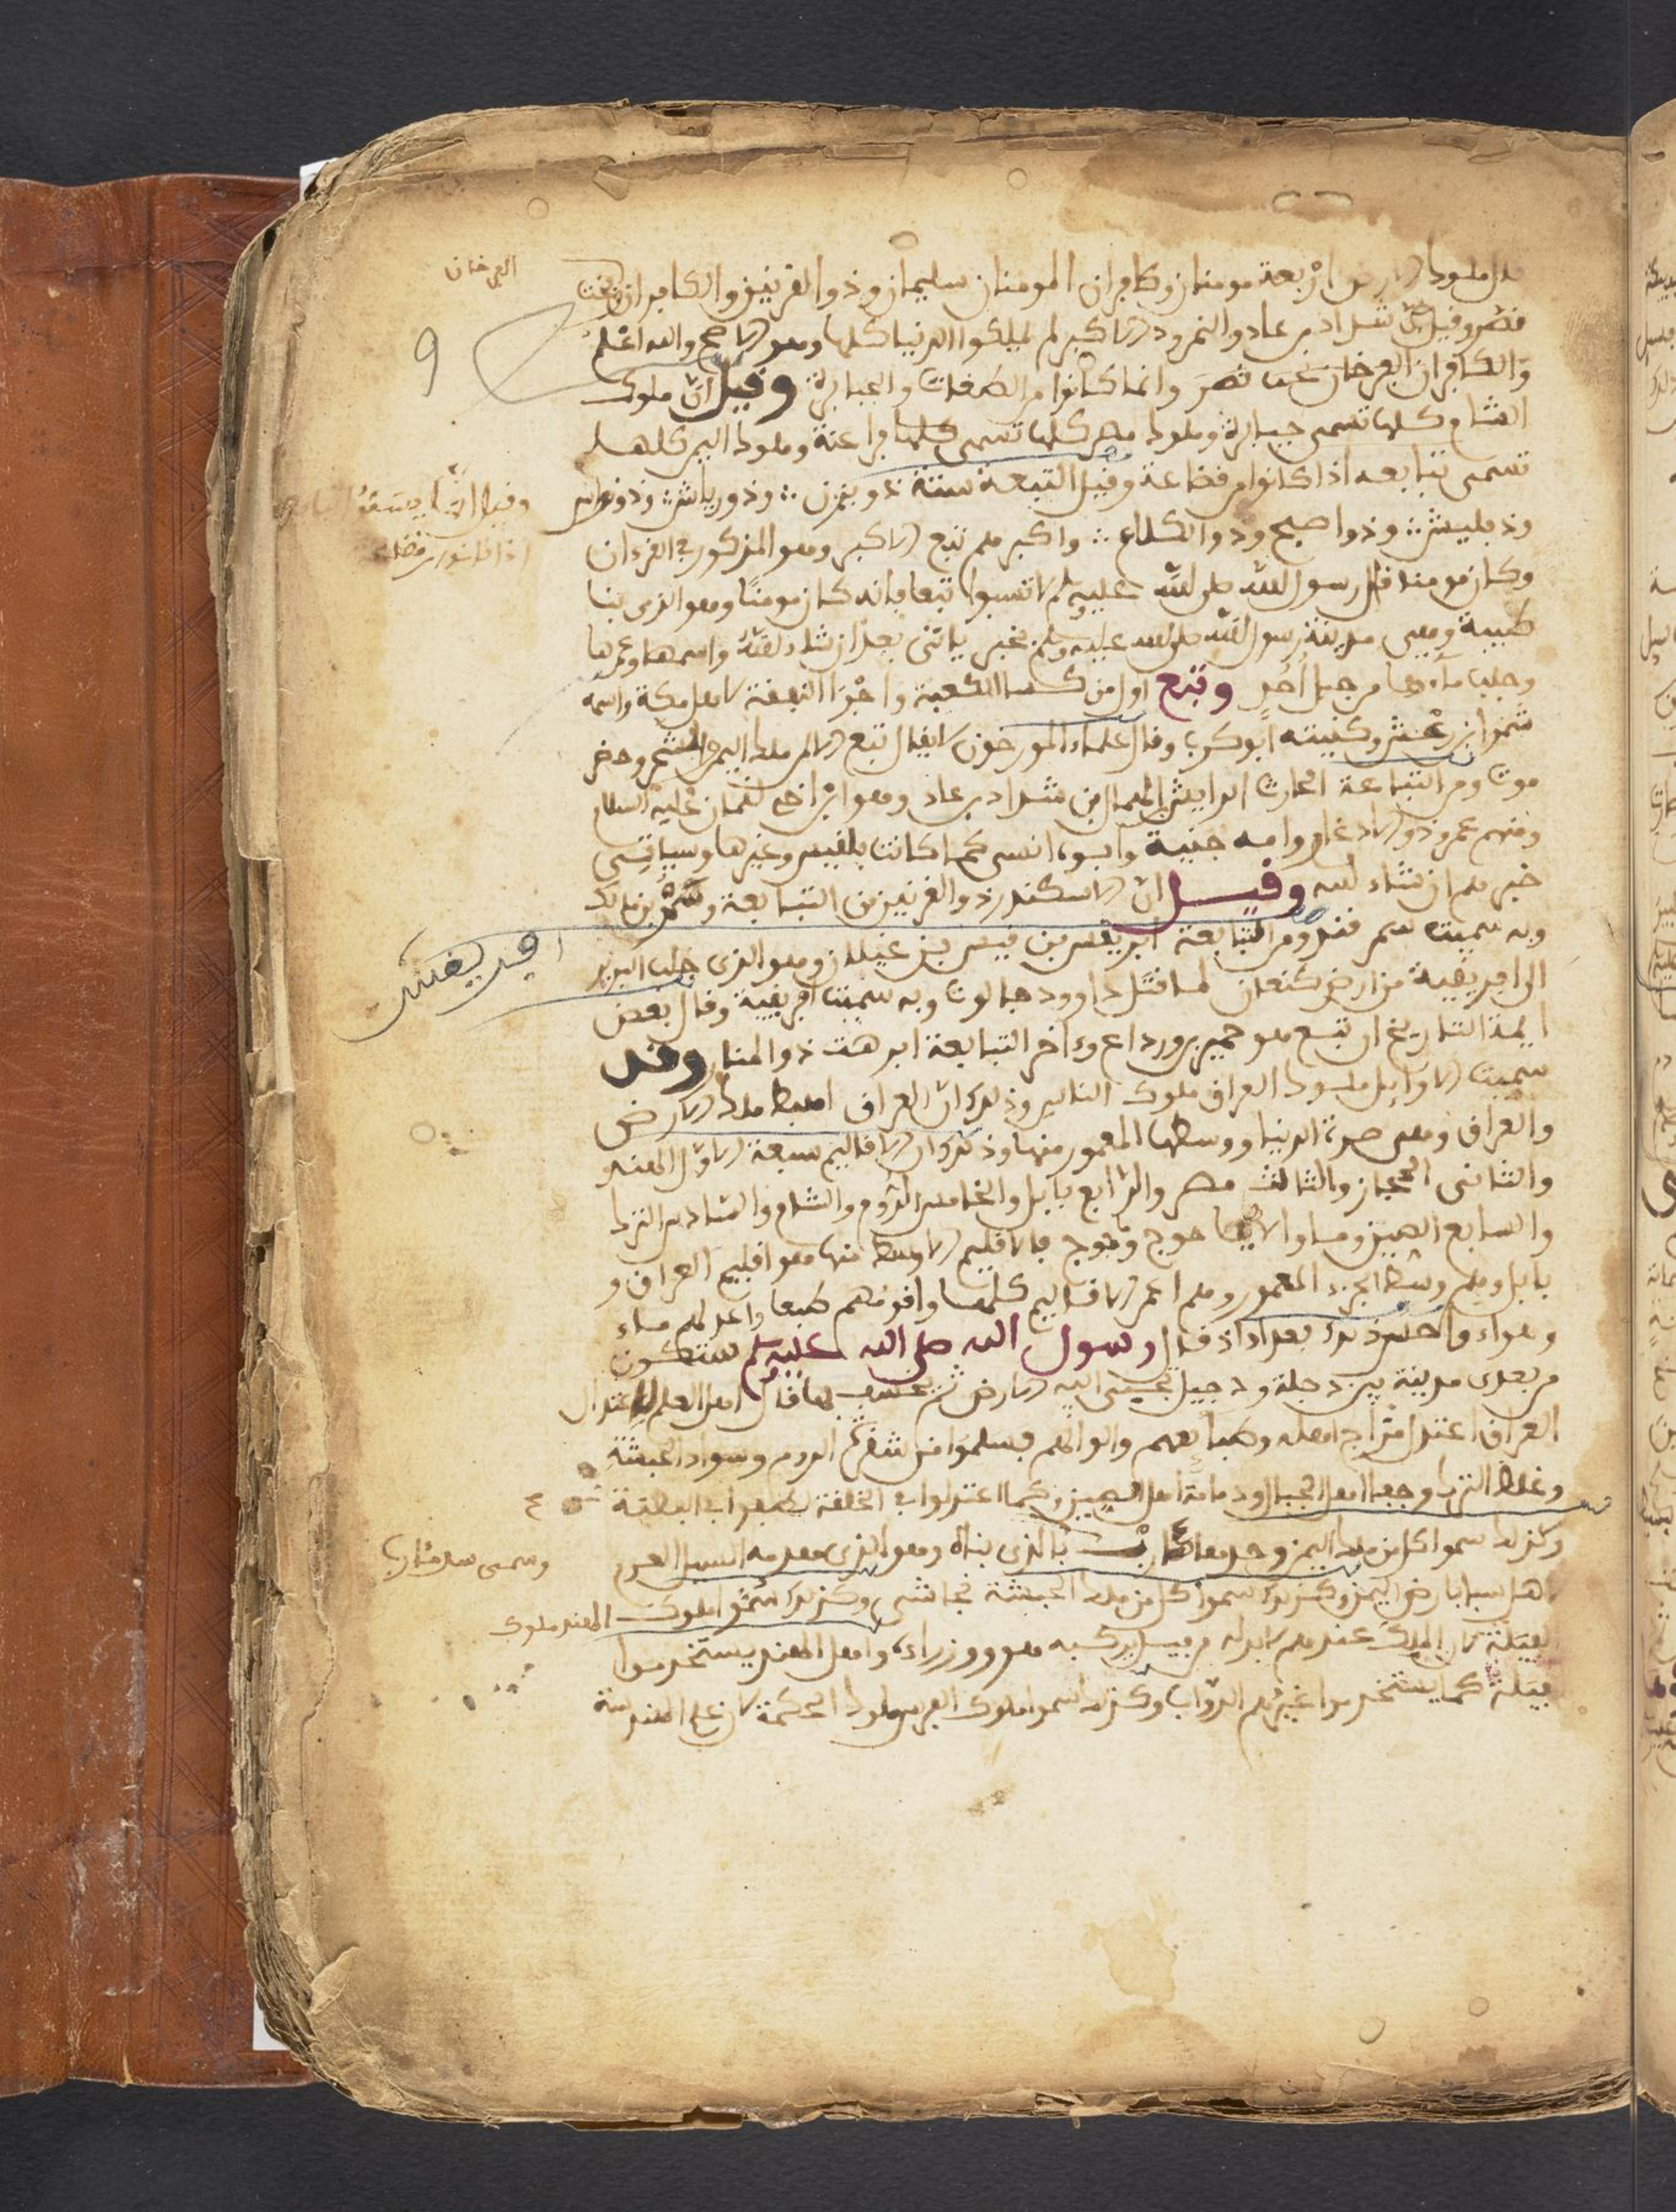 ملوك الارض اربعة مومنان وكافران المومنان سليمان وذوا القرنين والكافران بخت
نصر وقيل شداد بن عاد والنمرود الاكبر لم يملكوا الدنيا كلها وهو الاصح والله اعلم
والكافران بخت نصر وانما كانوا من الطغات والجبابرة وقيل ان ملوك
الشام كلها تسمى جبابرة وملوك مصر كلها تسمى كلها فراعنة وملوك اليمن كلها
تسمى تبابعه اذا كانوا من قضاعة وقيل التبعة ستة ذو يزن وذو رياش وذو نواس
وذو اصبح وذوا الكلاع واكبرهم تبع الاكبر وهو المذكور في القرءان
وكان مومنا قال رسول الله صلى الله عليه وسلم لا تسبوا تبعا فانه كان مومنا وهو الذي بنا
طيبة وهي مدينة رسول الله صلى الله عليه وسلم بخبر ياتي بعد ان شاء الله واسمها وعمرها
وجلب ماءها من جبل احد وتبع اول من كسا الكعبة واجرا النفقة لاهل مكة واسمه
شمر ابن رعش وكنيته ابو كرب وقال علماء المورخون لا يقال تبع الا لمن ملك اليمن والشحر وحضر
موت ومن التبابعة الحارث الرايش الهمال بن شداد بن عاد وهو ابن اخي لقمان عليه السلام
ومنهم عمرو ذو الادغار وامه جنية وابوه انسي كما كانت بلقيس وغيرها وسياتي
خبرهم ان شاء الله وقيل ان الاسكندر ذو القرنين من التبابعة وشمر بن مالك
وبه سميت سمر قند ومن التبابعة افريقس بن قيس بن غيلان وهو الذي جلب البربر
الى افريقية من ارض كنعان لما قتل داوود جالوت وبه سميت افريقية وقال بعض
ايمة التاريخ ان تبع هو حمير بن ورداع وءاخر التبابعة ابرهة ذوا المنار وقد
سميت الاوايل ملوك العراق ملوك الناس وذلك ان العراق اوسط ملك الارض
والعراق وهي صرة الدنيا ووسطها المعمور منها وذلك ان الاقاليم سبعة الاول الهند
والثاني الحجاز والثالث مصر والرابع بابل والخامس الروم والشام والسادس الترك
والسابع الصين وما والاها جوج وماجوج فالاقليم الاوسط منها هو اقليم العراق و
بابل وهم وسط الجزء المعمور وهم اعمر الاقاليم كلها واقومهم طبعا واعدلهم ماء
وهواء واحسن ذلك بغداد اذ قال رسول الله صلى الله عليه وسلم ستكون
من بعدي مدينة بين دجلة ودجيل تجبى اليه الارض ثم يخسف بها قال اهل العلم اعتدال
العراق اعتدل مزاج اهله وطبايعهم والوانهم فسلموا من شقرة الروم وسواد الحبشة
وغلظ الترك وجفا اهل الجبال ودمامة اهل الصين وكما اعتدلوا في الخلقة لطفوا في الفطنة
وكذلك سموا كل من ملك اليمن وحدها مارب بالذي بناه وهو الذي هدمه السيل العرم
اهل سبا بارض اليمن وكذلك سموا كل من ملك الحبشة نجاشي وكذلك سموا ملوك الهند ملوك
الفيلة لان الملك عندهم لا بد له من فيل يركبه هو ووزراءه واهل الهند يستخدموا
فيلة كما يستخدموا غيرهم الدواب وكذلك سموا ملوك الفرس ملوك الحكمة لان علم الهندسة
9
افريقس
وقيل